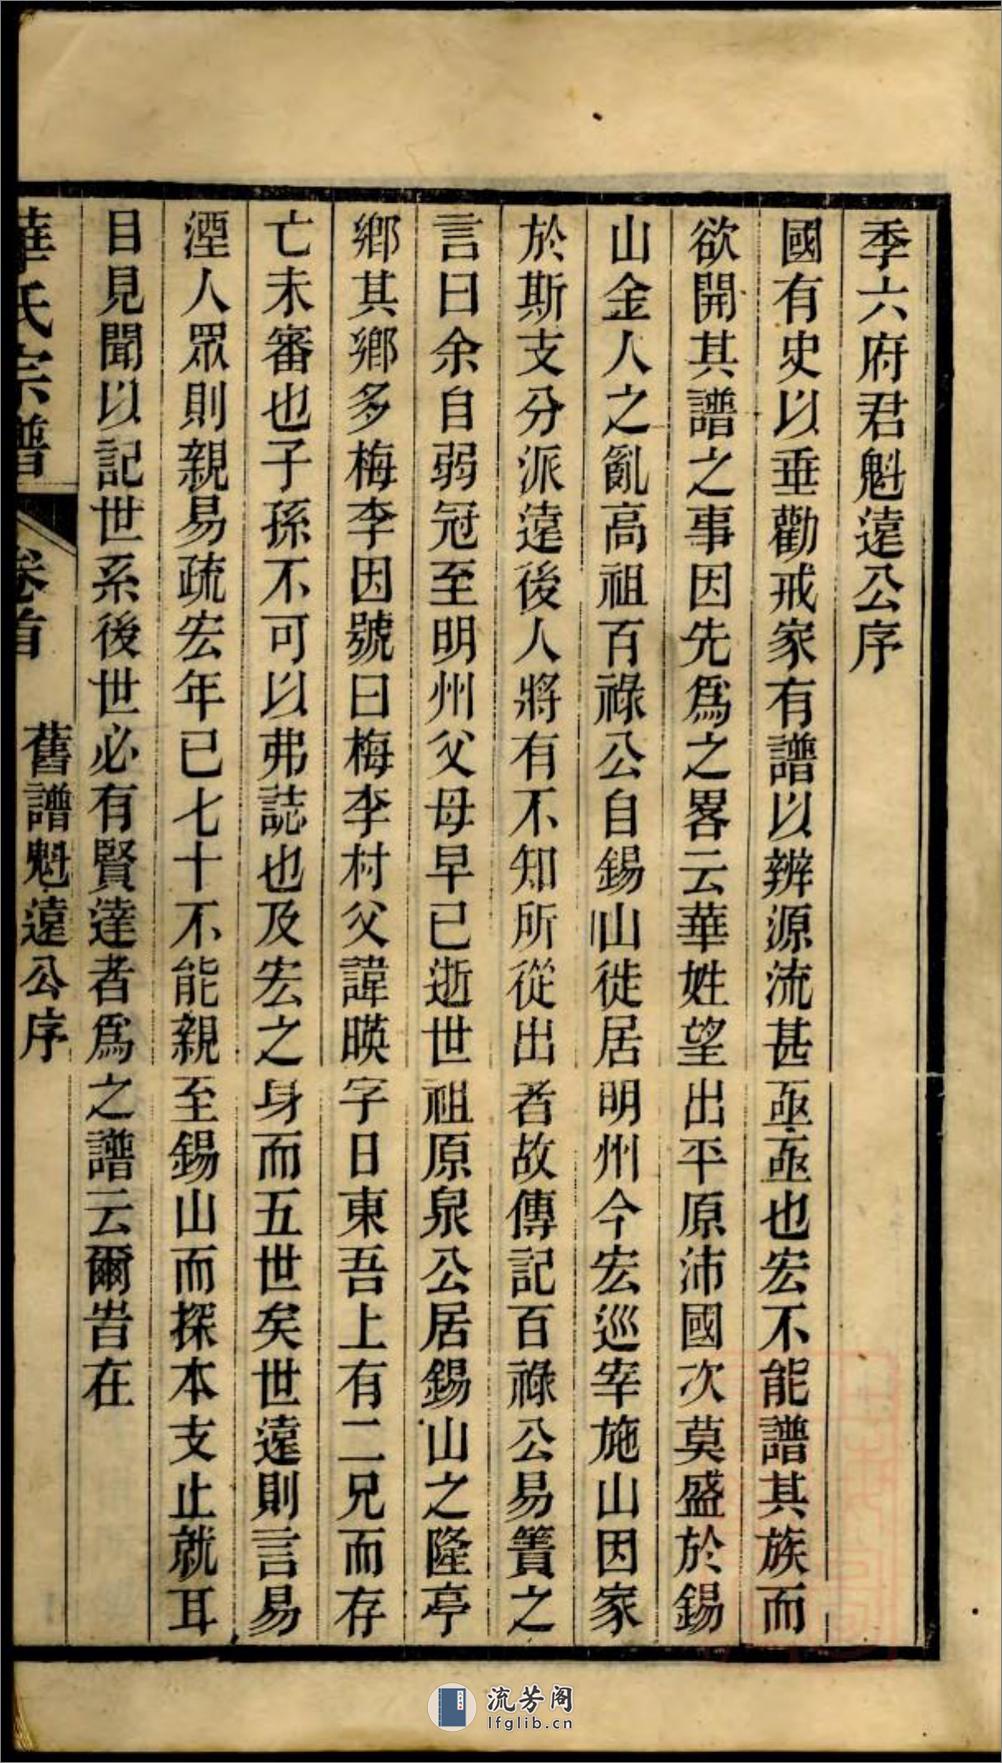 季六府君魁遠公序
國有史以垂勸戒家有譜以辨源流甚亟亟也宏不能譜其族而
欲開其譜之事因先爲之畧云華姓望出平原沛國次莫盛於錫
山金人之亂高祖百祿公自錫山徙居明州今宏巡宰施山因家
於斯支分派遠後人將有不知所從出者故傳記百祿公易簀之
言曰余自弱冠至明州父母早已逝世祖原泉公居錫山之隆亭
鄉其鄉多梅李因號曰梅李村父諱暎字日東吾上有二兄而存
亡未審也子孫不可以弗誌也及宏之身而五世矣世遠則言易
湮人眾則親易疏宏年已七十不能親至錫山而探本支止就耳
目見聞以記世系後世必有賢達者爲之譜云爾旹在
華氏宗譜 卷首 舊譜魁遠公序
流芳阁
lfglib.cn